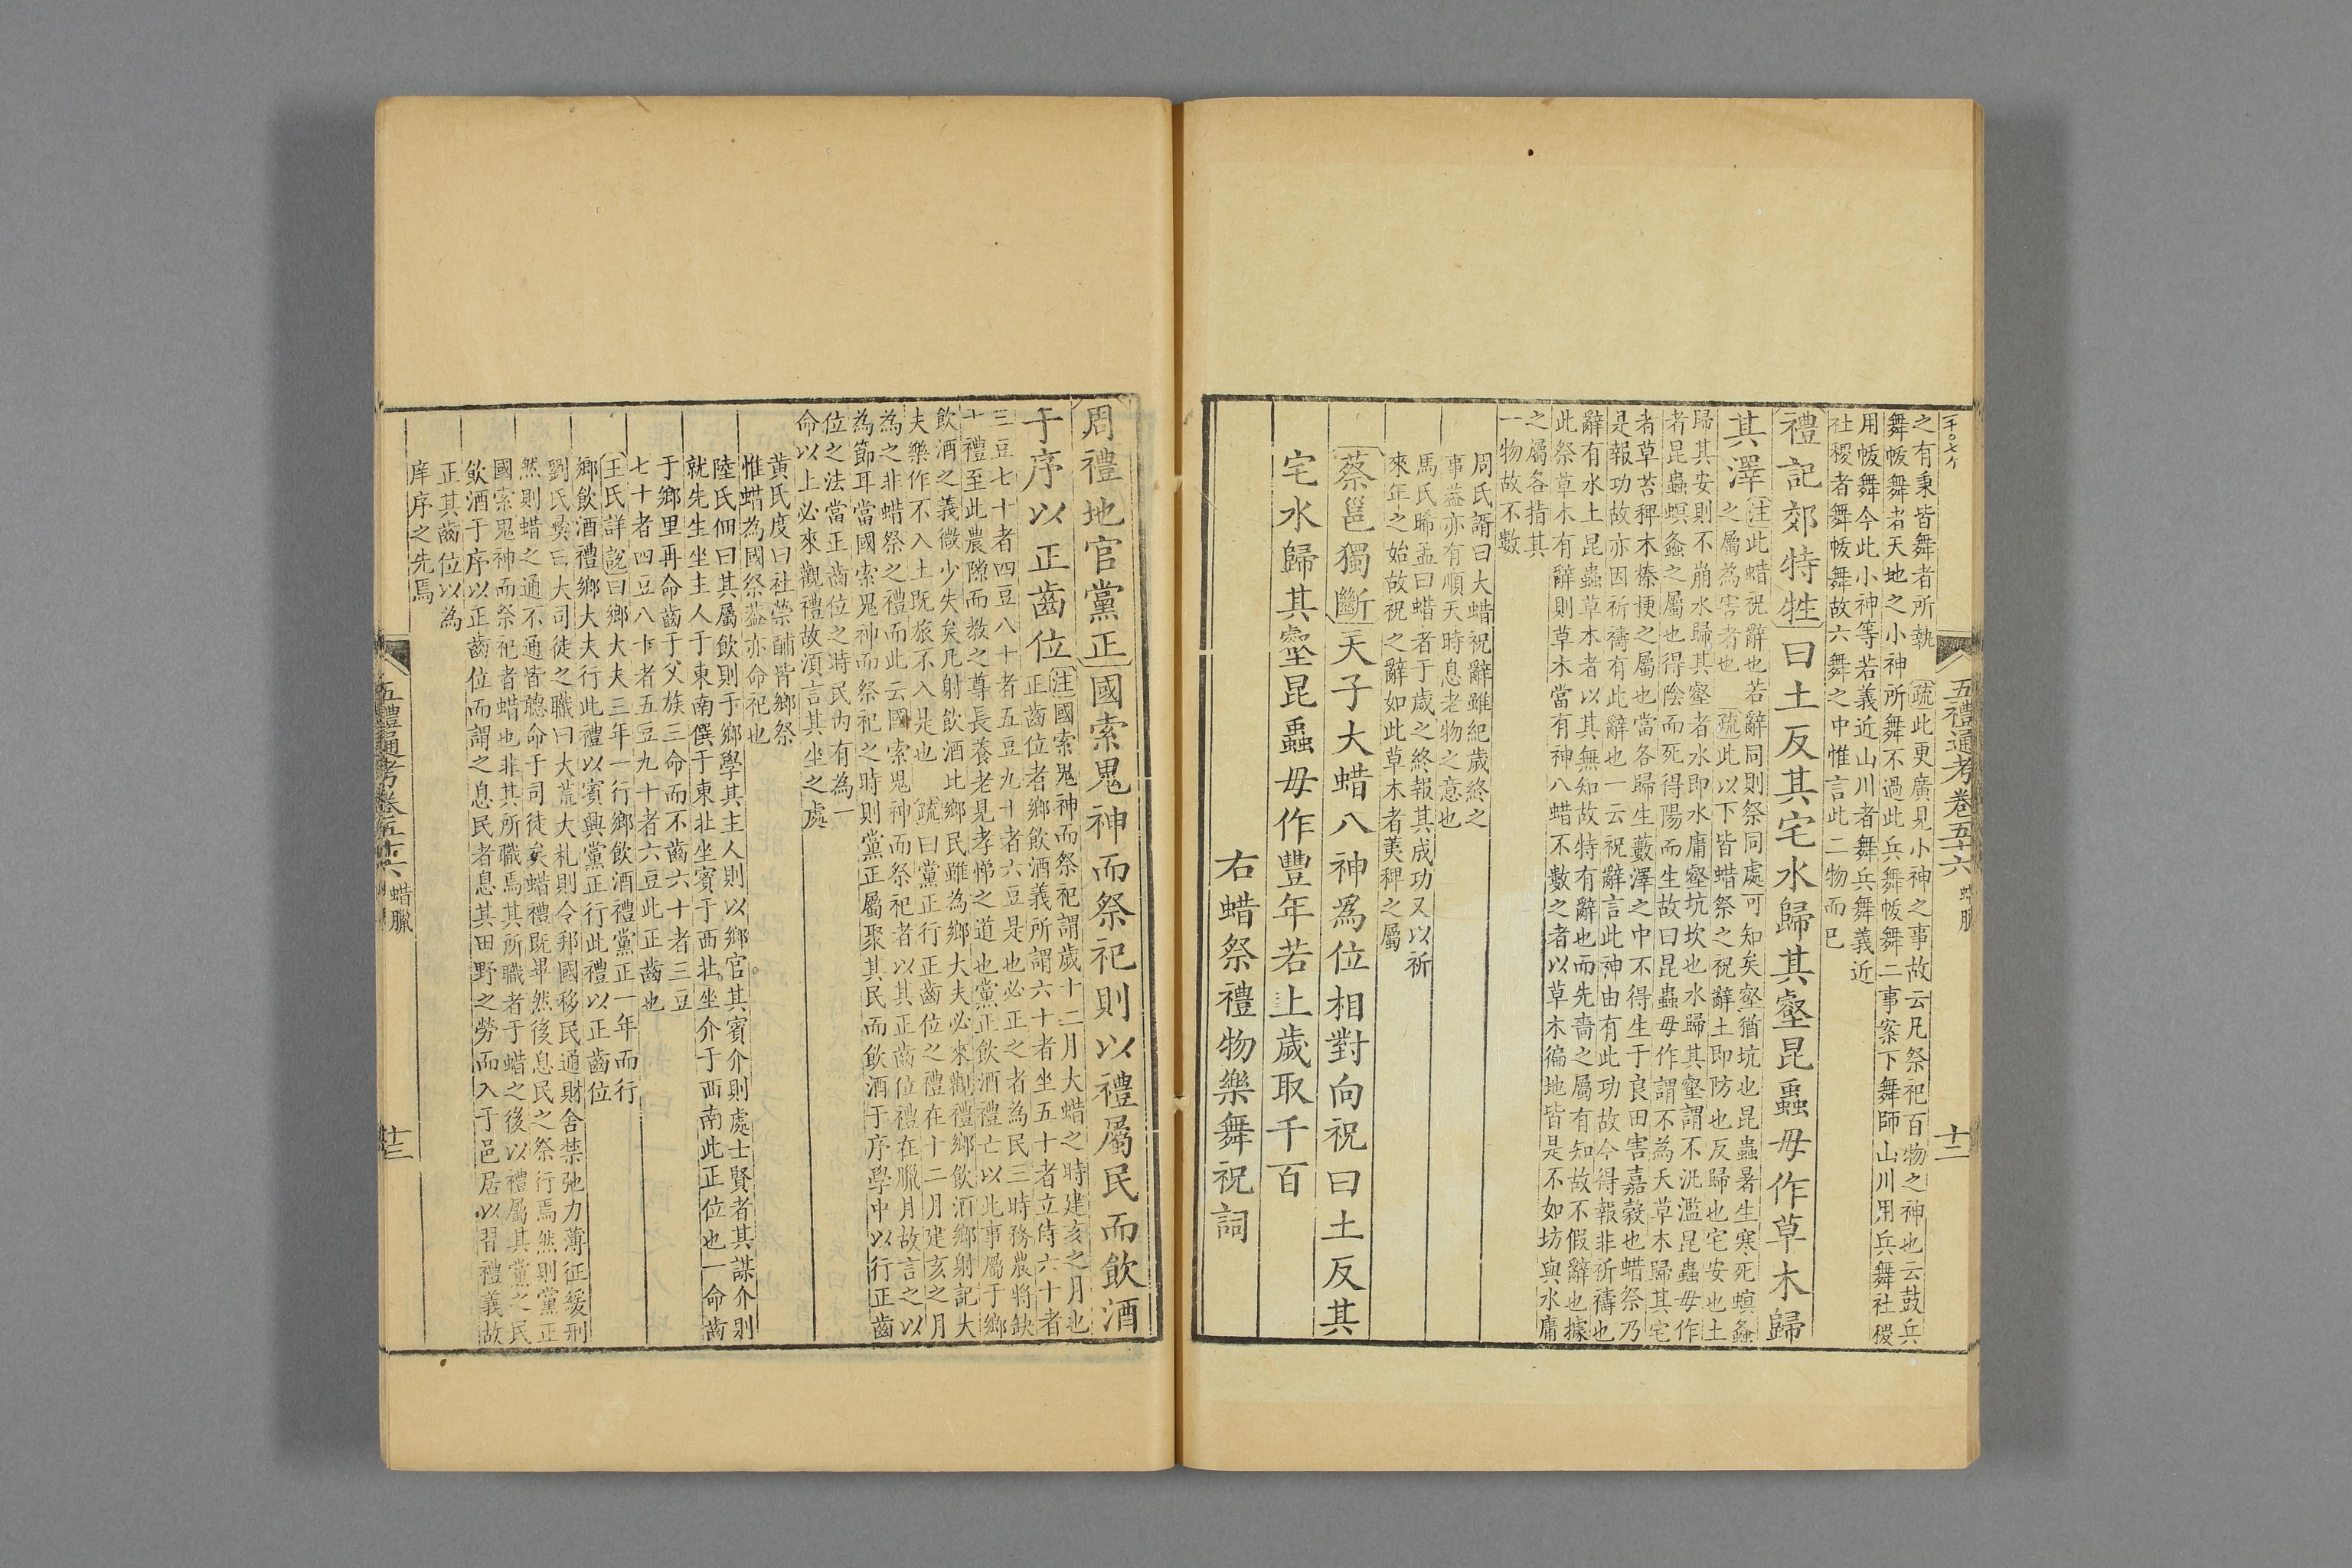 五禮通考卷五十六 蜡臘 十二
之有秉皆舞者所執
疏此更廣見小神之事故云凡祭祀百物之神也云鼓兵
舞帗舞者天地之小神所舞不過此兵舞帗舞二事案下舞師山川用兵舞社稷
用帗舞今此小神等若義近山川者舞兵舞義近
社稷者舞帗舞故六舞之中惟言此二物而已
禮記郊特牲曰土反其宅水歸其壑昆蟲毋作草木歸
其澤
注此蜡祝辭也若辭同則祭同處可知矣壑猶坑也昆蟲暑生寒死螟螽
之屬為害者也 疏此以下皆蜡祭之祝辭土即防也反歸也宅安也土
歸其安則不崩水歸其壑者水即水庸壑坑坎也水歸其壑謂不汎濫昆蟲毋作
者昆蟲螟螽之屬也得陰而死得陽而生故曰昆蟲毋作謂不為天草木歸其宅
者草苔稗木榛梗之屬也當各歸生藪澤之中不得生于良田害嘉穀也蜡祭乃
是報功故亦因祈禱有此辭也一云祝辭言此神由有此功故今得報非祈禱也
辭有水土昆蟲草木者以其無知故特有辭也而先嗇之屬有知故不假辭也據
此祭草木有辭則草木當有神八蜡不數之者以草木徧地皆是不如坊與水庸
之屬各指其
一物故不數
周氏諝曰大蜡祝辭雖紀歲終之
事葢亦有順天時息老物之意也
馬氏晞孟曰蜡者于歲之終報其成功又以祈
來年之始故祝之辭如此草木者荑稗之屬
蔡邕獨斷天子大蜡八神爲位相對向祝曰土反其
宅水歸其壑昆蟲毋作豐年若上歲取千百
右蜡祭禮物樂舞祝詞
周禮地官黨正國索鬼神而祭祀則以禮屬民而飲酒
于序以正齒位
注國索鬼神而祭祀謂歲十二月大蜡之時建亥之月也
正齒位者鄉飲酒義所謂六十者坐五十者立侍六十者
三豆七十者四豆八十者五豆九十者六豆是也必正之者為民三時務農將缺
于禮至此農隙而教之尊長養老見孝悌之道也黨正飲酒禮亡以此事屬于鄉
飲酒之義微少失矣凡射飲酒此鄉民雖為鄉大夫必來觀禮鄉飲酒鄉射記大
夫樂作不入士既旅不入是也 疏曰黨正行正齒位之禮在十二月建亥之月
為之非蜡祭之禮而此云國索鬼神而祭祀者以其正齒位禮在臘月故言之以
為節耳當國索鬼神而祭祀之時則黨正屬聚其民而飲酒于序學中以行正齒
位之法當正齒位之時民內有為一
命以上必來觀禮故須言其坐之處
黃氏度曰社禜酺皆鄉祭
惟蜡為國祭葢亦命祀也
陸氏佃曰其屬飲則于鄉學其主人則以鄉官其賓介則處士賢者其謀介則
就先生坐主人于東南僎于東北坐賓于西北坐介于西南此正位也一命齒
于鄉里再命齒于父族三命而不齒六十者三豆
七十者四豆八十者五豆九十者六豆此正齒也
王氏詳說曰鄉大夫三年一行鄉飲酒禮黨正一年而行
鄉飲酒禮鄉大夫行此禮以賓興黨正行此禮以正齒位
劉氏彝曰大司徒之職曰大荒大札則令邦國移民通財舍禁弛力薄征緩刑
然則蜡之通不通皆聽命于司徒矣蜡禮既畢然後息民之祭行焉然則黨正
國索鬼神而祭祀者蜡也非其所職焉其所職者于蜡之後以禮屬其黨之民
飲酒于序以正齒位而謂之息民者息其田野之勞而入于邑居以習禮義故
正其齒位以為
庠序之先焉
五禮通考卷五十六 蜡臘 十三